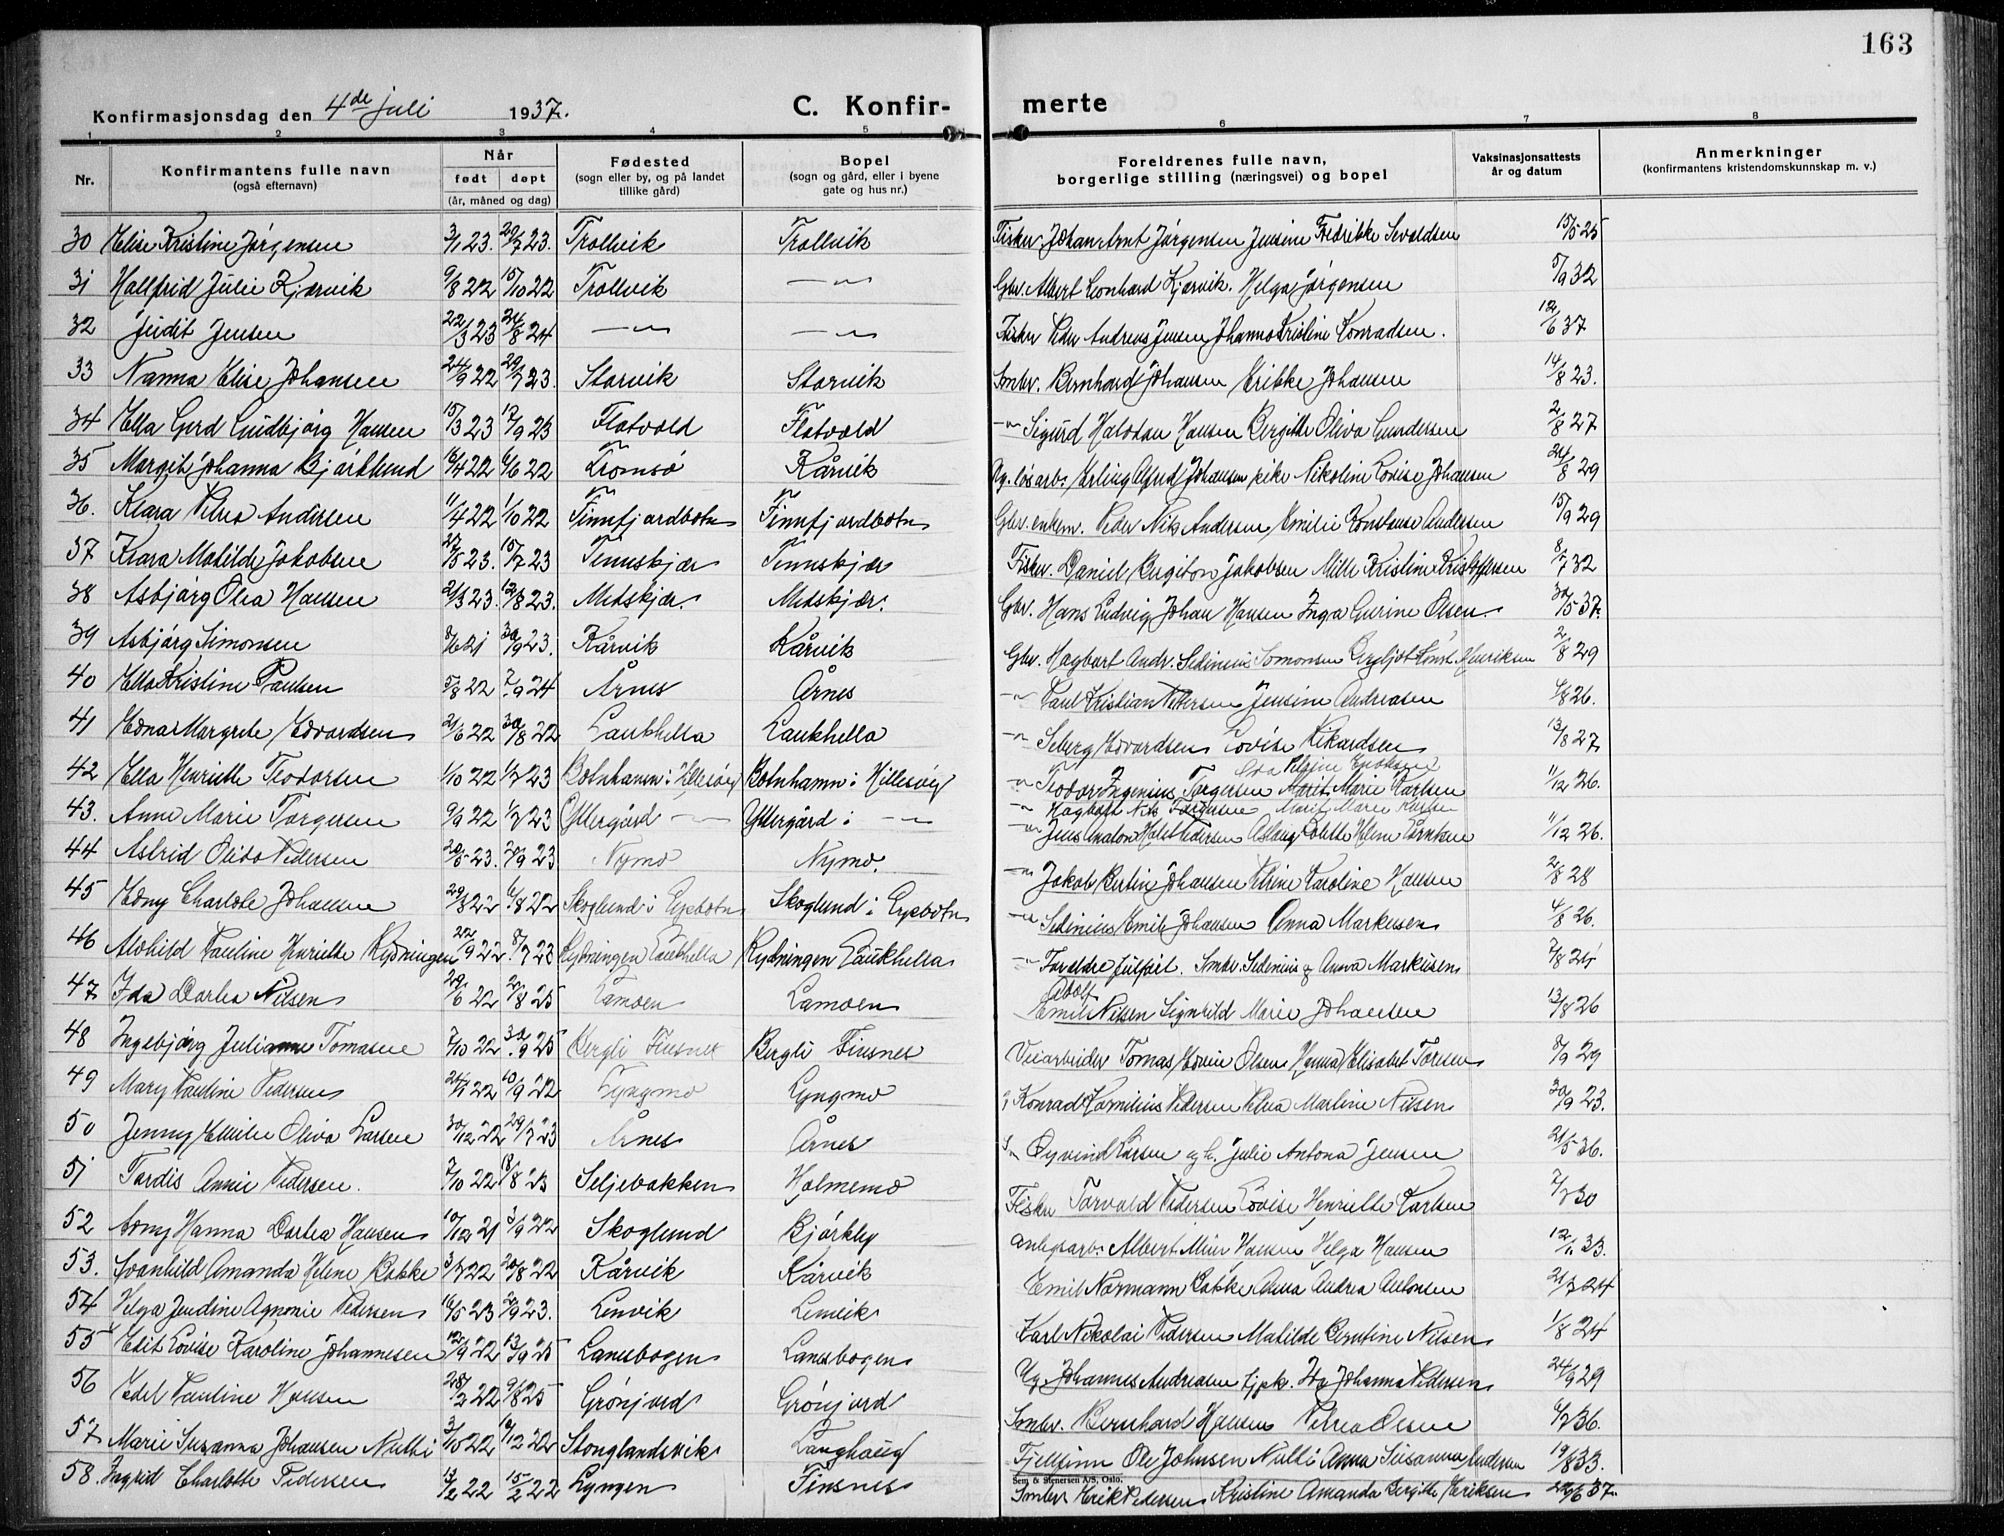 163
Konfirmasjonsdag den 4de juli 1937. C. Konfir- merte
1 2 3 4 5 6 7 8
Nr. Konfirmantens fulle navn (også efternavn) Når født døpt (år, måned og dag) Fødested (sogn eller by, og på landet tillike gård) Bopel (sogn og gård, eller i byene gate og hus nr.) Foreldrenes fulle navn, borgerlige stilling (næringsvei) og bopel Vaksinasjonsattests år og datum Anmerkninger (konfirmantens kristendomskunnskap m. v.)
30 Elise Kristine Jørgensen 3/1 23. 29/7 23. Trollvik Trollvik Fisker Johan Arnt Jørgensen Jensine Fredrikke Sevaldsen 15/5 25
31 Hallfrid Julie Kjærvik 9/8 22 15/10 22 Trollvik —"— Gbr. Albert Leonhard Kjærvik. Helga Jørgensen 5/9 32
32 Judit Jensen 22/3 23 24/8 24 —"— —"— Fisker Peder Andreas Jensen Johanna Kristine Konradsen. 12/6 37
33 Nanna Elise Johansen 24/9 22 29/7 23. Storvik Storvik Småbr. Bernhard Johansen Erikke Johansen 14/8 23.
34 Ella Gerd Lindbjørg Hansen 15/3 23 17/9 23 Flatvold Flatvold —"— Sigurd Halvdan Hansen Bergitte Oliva Gundersen 2/8 27
35 Margit Johanna Bjørklund 18/4 22 6/6 22 Tromsø Kårvik Ug. løsarb. Erling Alfred Johansen pike Nikoline Lovise Johansen 24/8 29
36. Klara Petra Andersen 11/4 22 1/10 22 Finnfjordbotn Finnfjordbotn Gbr. enkem. Peder Nils Andersen Emilie Konstanse Andersen 15/9 29
37 Klara Matilde Jakobsen 27/5 23. 15/7 23 Tennskjær Tennskjær Fisker. Daniel Bergiton Jakobsen Mille Kristine Kristoffersen 8/7 32
38 Asbjørg Olea Hansen 21/3 23. 12/8 23. Metskjær. Metskjær. Gbr. Hans Ludvig Johan Hansen Inga Gurine Olsen. 30/5 37.
39 Asbjørg Simonsen 8/6 21 30/9 23. Kårvik Kårvik Gbr. Hagbart Andr. Sedenius Simonsen Bergljot Konst. Henriksen 2/8 29
40 Ella Kristine Paulsen 5/8 22 7/9 24 Årnes Årnes —"— Paul Kristian Pettersen Jensine Andreasen 4/8 26.
41 Edna Margrete Edvardsen 21/6 22 30/8 22 Laukhella Laukhella —"— Seberg Edvardsen Lovise Rikardsen 13/8 27
42 Ella Henriette Teodorsen 1/10 22 1/7 23 Botnhamn i Hillesøy Botnhamn i Hillesøy —"— Teodor Ingenius Torgersen Marit Marie Karlsen 11/12 26.
43. Anne Marie Torgersen 9/9 22 1/7 23 Yttergård —"— Yttergård i —"— —"— Hagbart Nils Torgersen Marit Marie Karlsen
44 Astrid Olida Pedersen 20/5 23. 2/9 23 Nymo Nymo. —"— Jens Anaton Hølet Pedersen Aslaug Colette Helene 11/12 26.
45 Edny Charlotte Johansen 29/3 22 6/8 22 Skoglund i Gypbotn Skoglund i Gypbotn —"— Jakob Bertin Johansen Petrine Karoline Hansen 2/8 28
46 Alvhild Pauline Henriette Rydningen 22/9 22. 8/7 23 Rydningen Laukhella Rydningen Laukhella —"— Sedinius Emil Johansen Anna Markusen 4/8 26.
—"— Foreldre feilført. Småbr. Sedenius & Anna Markusen 7/8 24
47 Ida Dorlea Nilsen 29/6 22 2/8 25 Lamoen Lamoen Adolf Emil Nilsen Signhild Marie Johansen 13/8 26
48 Ingebjørg Julianne Tomasen 7/10 22 30/9 25 Bergli Finsnes Bergli Finsnes Veiarbeider Tomas Edvin Olsen Hanna Elisabet Toresen 8/9 29
49 Mary Pauline Pedersen 24/1 22 10/9 22 Lyngmo Lyngmo Konrad Kornilius Pedersen Petra Martine Nilsen 30/9 23.
50 Jenny Emilie Oliva Larsen 30/12 22 29/7 23 Årnes Årnes Øyvind Larsen og h. Julie Antona Jensen 21/5 36.
51 Tordis Annie Pedersen. 7/10 22 18/8 23 Seljebakken Holmemo Fisker Torvald Pedersen Lovise Henriette Karlsen 7/7 30
52 Edny Hanna Dortea Hansen 10/12 21 3/9 22 Skoglund Bjørkly Anlegsarb. Albert Meier Hansen Helga Hansen 12/11 33.
53. Svanhild Amanda Helene Bakke 3/7 22 20/8 22 Kårvik Kårvik Emil Normann Bakke Anna Andrea Antonsen 21/3 24
54 Helga Jendine Agnonie Pedersen 16/5 23 2/9 23. Lenvik Lenvik Karl Nikolai Pedersen Matilde Berntine Nilsen 1/8 24
55 Edit Lovise Karoline Johannesen 12/9 22 13/9 25 Lanesbogen Lanesbogen Ug. Johannes Andreasen tjpk. Ida Johanna Pedersen 24/9 29
56 Edel Pauline Hansen 28/2 22 9/8 25 Grønjord Grønjord Småbr. Bernhard Hansen Petra Olsen 6/7 36.
57 Marie Suzanna Johansen Nutti 3/10 22 10/12 22 Stonglandsvik Langhaug Fjellfinn Ole Johnsen Nutti Anna Susanna Andersen 19/8 33.
58. Ingrid Charlotte Pedersen 13/2 22 15/2 22 Lyngen Finsnes Småbr. Erik Pedersen Kristine Amanda Bergitte Eriksen 29/6 37.
Sem & Stenersen A/S, Oslo.